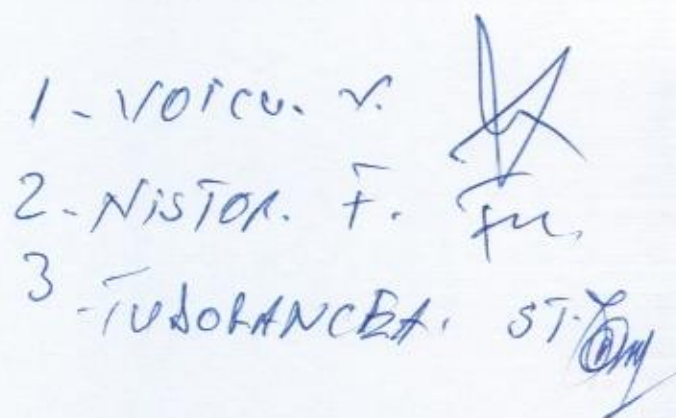 1 - VOICU. V.
2 - NISTOR. F.
3 - TUDORANCEA. ST.